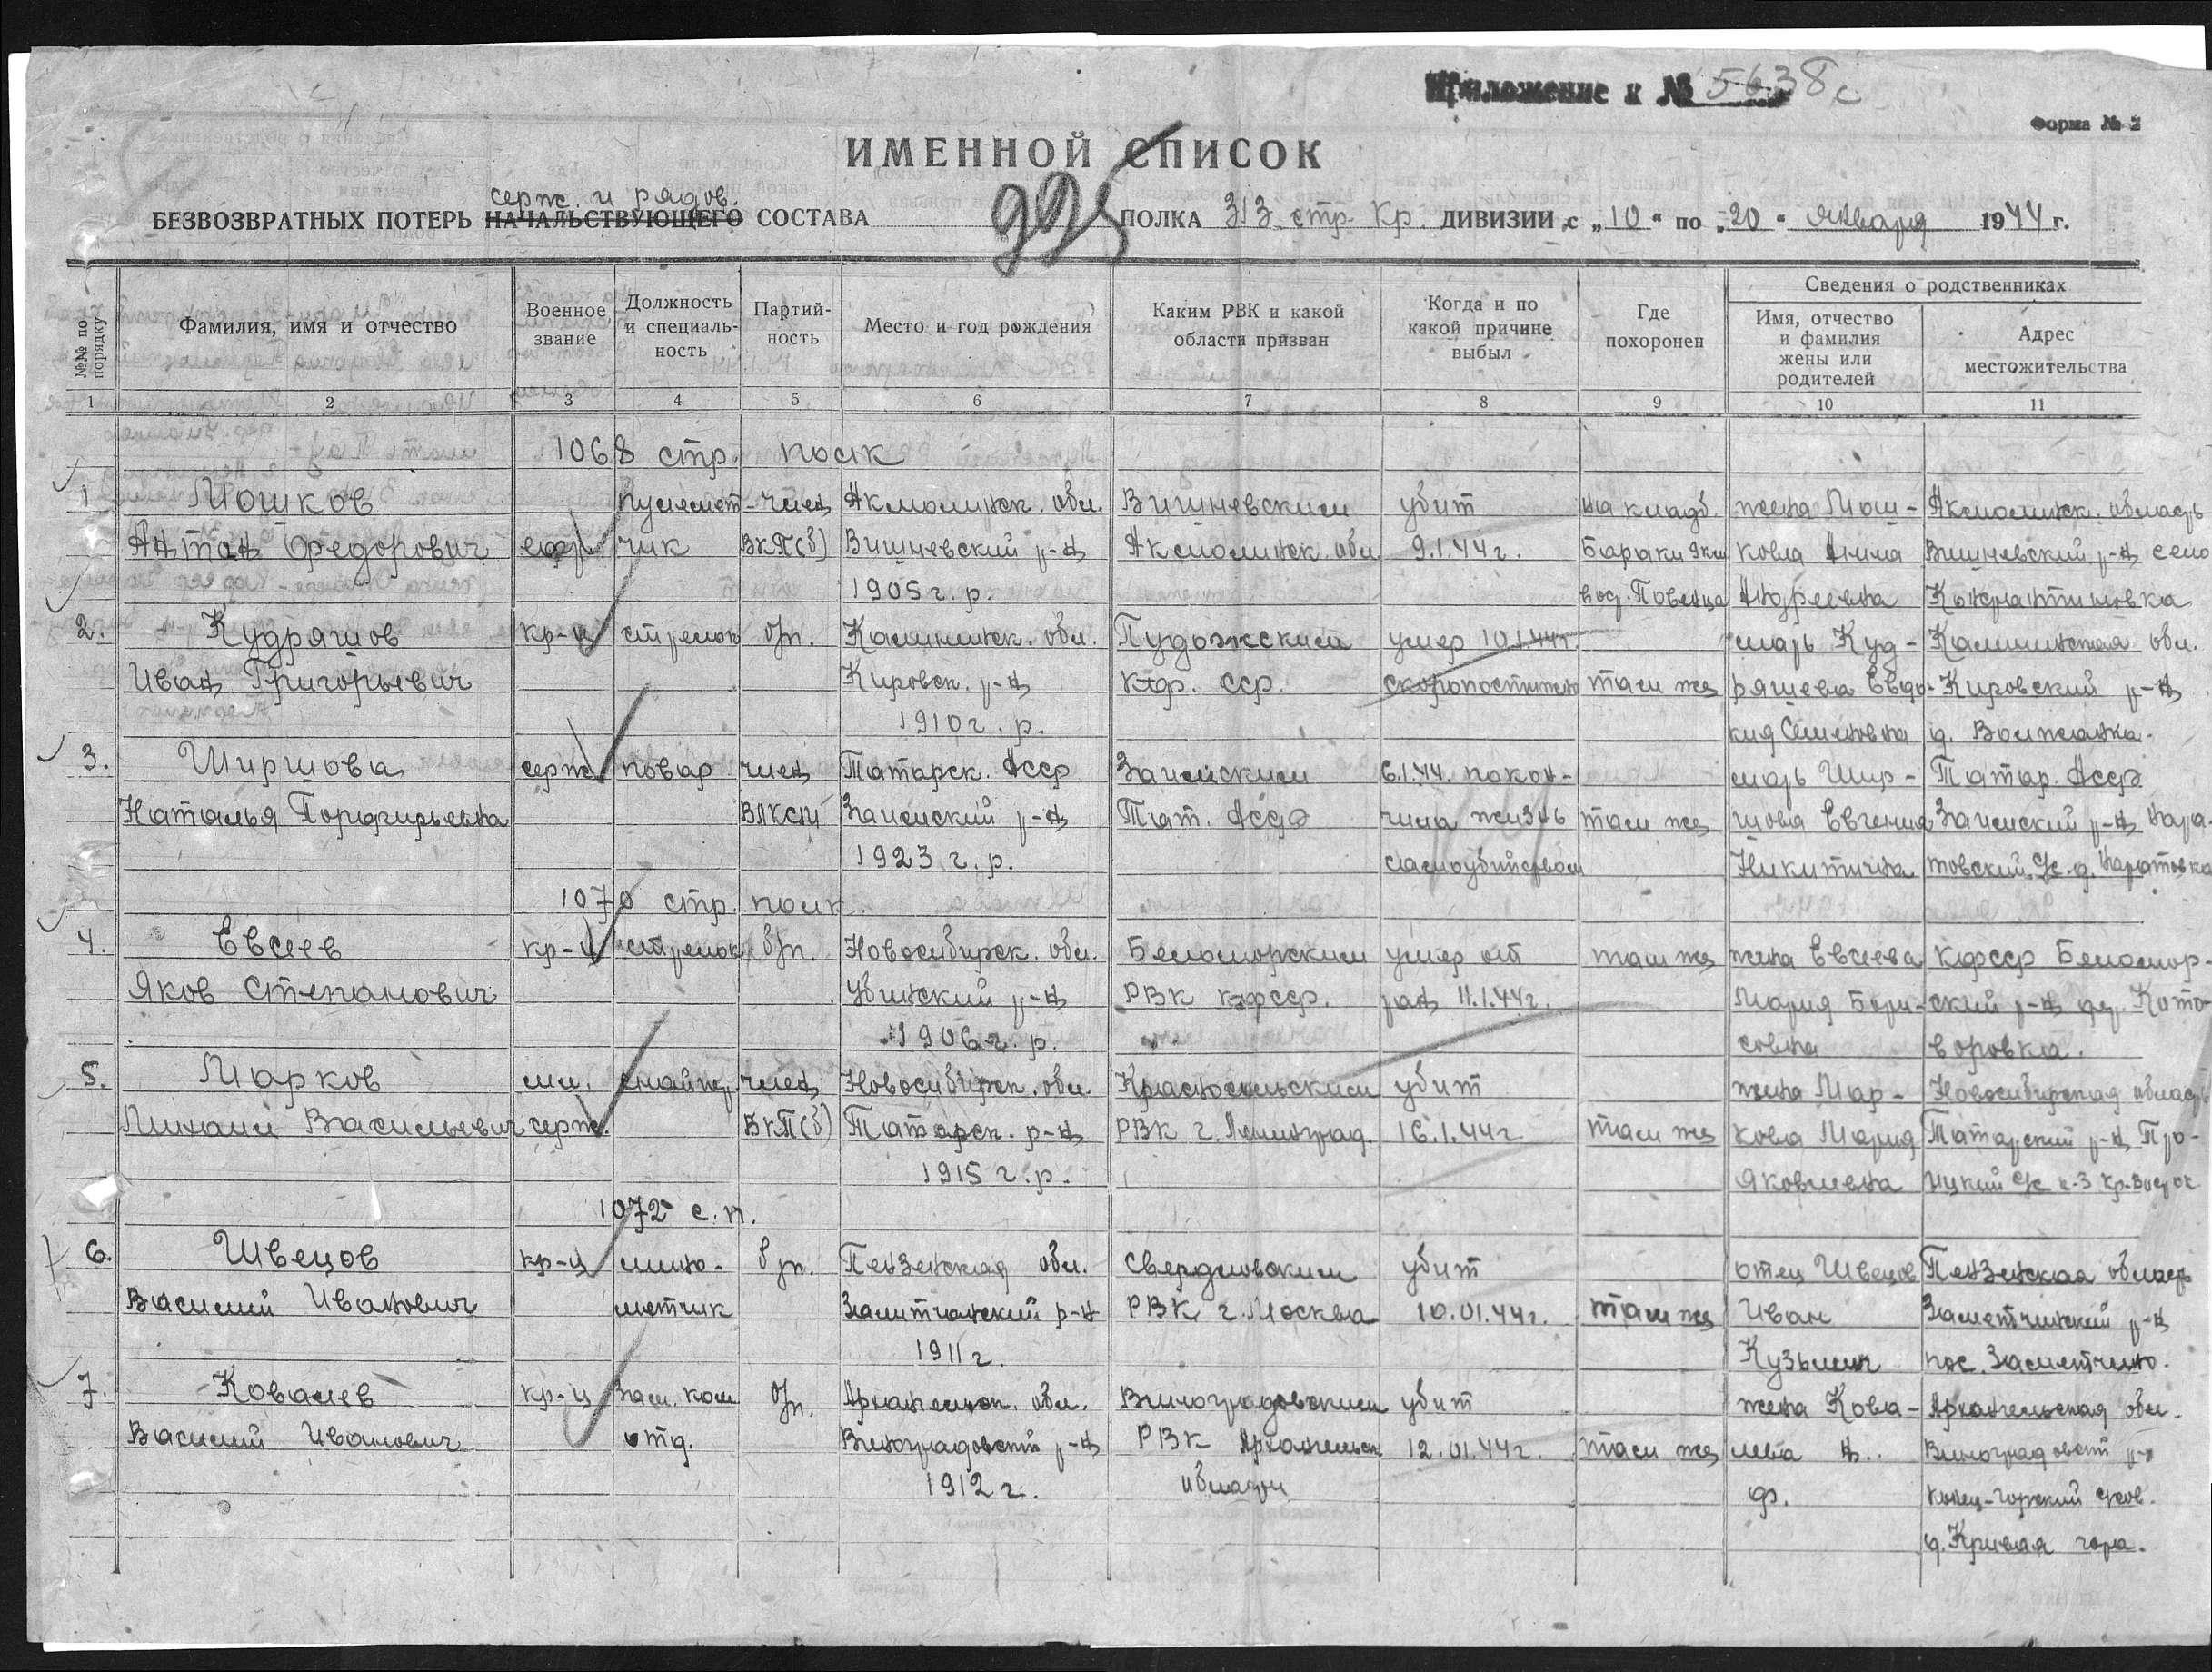 Приложение к № 5638с
Форма № 2
ИМЕННОЙ СПИСОК
серж. и рядов.
БЕЗВОЗВРАТНЫХ ПОТЕРЬ НАЧАЛЬСТВУЮЩЕГО СОСТАВА ПОЛКА 313 стр. Кр. ДИВИЗИИ с „10“ по „20“ января 1944 г.
№№ по порядку
Фамилия, имя и отчество
Военное звание
Должность и специальность
Партийность
Место и год рождения
Каким РВК и какой области призван
Когда и по какой причине выбыл
Где похоронен
Сведения о родственниках
Имя, отчество и фамилия жены или родителей
Адрес местожительства
1 2 3 4 5 6 7 8 9 10 11
1068 стр. полк
1 Мошков пулемет- член Акмолинск. обл. Вишневским убит на кладб. жена Мош- Акмолинск. область
Антон Федорович ефр чик ВКП(б) Вишневский р-н Акмолинск. обл. 9.1.44г. Бараки 9км кова Анна Вишневский р-н село
1905 г. р. вос. Повенца Андреевна
2. Кудряшов кр-ц стрелок б/п. Калининск. обл. Пудожским умер 10.1.44г. мать Куд- Калининская обл.
Иван Григорьевич Кировск. р-н КФ. ССР. скоропостижно там же ряшева Евдо- Кировский р-н
1910 г. р. кия Семеновна д.
3. Ширшова серж. повар член Татарск. АССР Заинским 6.1.44. покон- мать Шир- Татар. АССР
Наталья Порфирьевна ВЛКСМ Заинский р-н Тат. АССР чила жизнь там же шова Евгения Заинский р-н Кара-
1923 г. р. самоубийством Никитична товский с/с. д. Каратовка
1070 стр. полк
4. Евсеев кр-ц стрелок б/п. Новосибирск. обл. Беломорским умер от там же жена Евсеева КФССР Беломор-
Яков Степанович Убинский р-н РВК КФССР. ран 11.1.44г. Мария Бори- ский р-н
1906 г. р. совна
5. Марков мл. снайпер. член Новосибирск. обл. Красносельским убит жена Мар- Новосибирская область
Михаил Васильевич серж. ВКП(б) Татарск. р-н РВК г. Ленинград. 16.1.44г. там же кова Мария Татарский р-н
1915 г. р. Яковлевна с/с к-з Кр. Восток
1072 с. п.
6. Швецов кр-ц мино- б/п. Пензенская обл. Свердловским убит отец Швецов Пензенская область
Василий Иванович метчик Заметчинский р-н РВК г. Москва 10.01.44г. там же Иван Заметчинский р-н
1911 г. Кузьмич пос. Заметчино.
7. Ковалев кр-ц зам. ком б/п. Архангельск. обл. Виноградовским убит жена Кова- Архангельская обл.
Василий Иванович отд. Виноградовский р-н РВК Архангельск 12.01.44г. там же лева А. Виноградовский р-н
1912 г. области Ф. Конец-Горский с/сов.
д. Кривая гора.